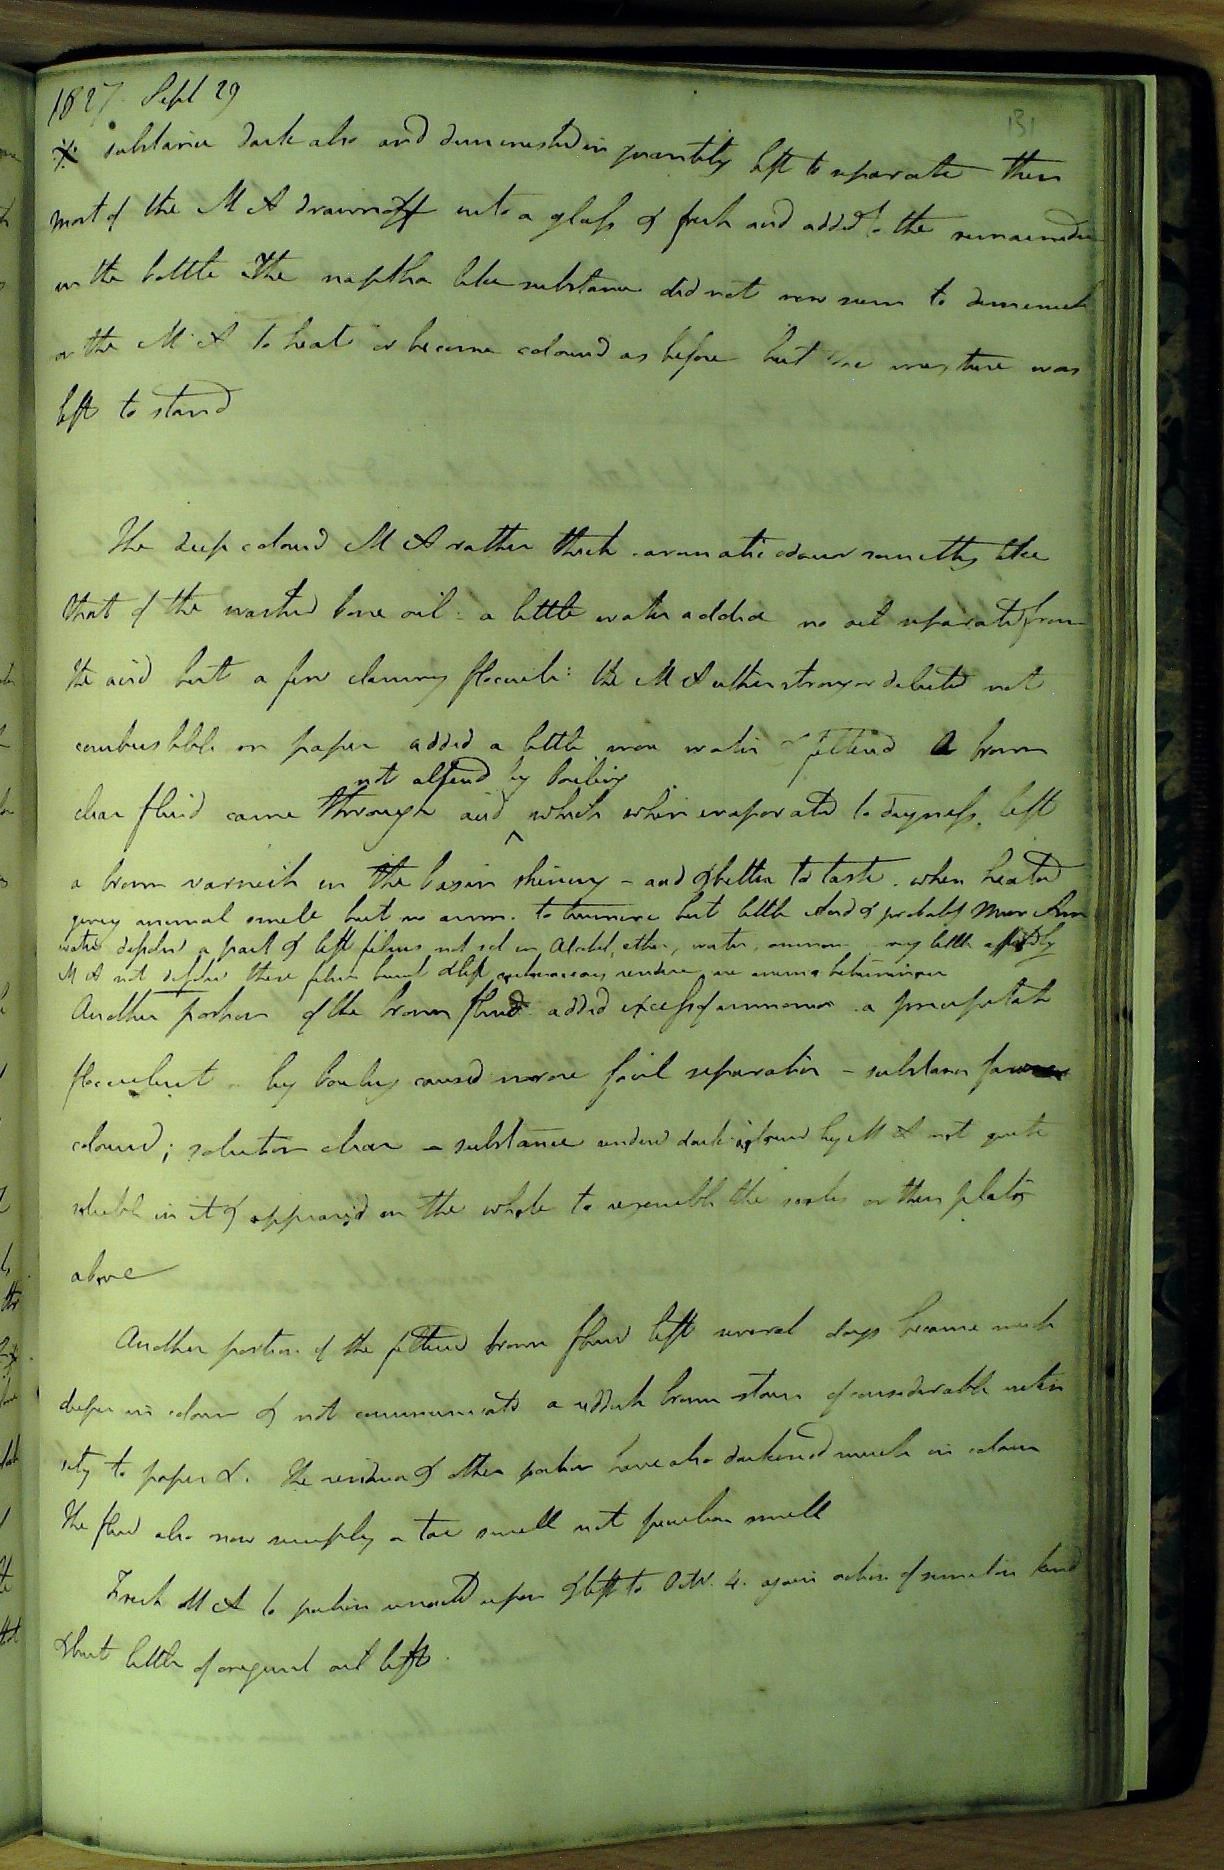 1827 Sept 29
131
substance dark also and diminished in quantity left to separate then
most of the M A drawn off into a glass & fresh acid added to the remainder
in the bottle The naptha like substance did not now seem to diminish
or the M A to heat or become coloured as before but the mixture was
left to stand
The deep coloured M A rather thick aromatic odour something like
that of the washed bone oil : a little water added no oil separated from
the acid but a few flocculi : the M A either strong or diluted not
combustible on paper added a little more water & filtered A brown
not altered by boiling
clear fluid came through acid ^ which when evaporated to dryness left
a brown varnish in the basin shining - acid & bitter to taste . when heated
giving animal smell but no amm. to turmeric but little Acid & probably Mur Amm
water dissolved a part & left films not sol in Alcohol, ether, water, ammonia very little by
M A not dissolve these films burnt & left carbonaceous residue
Another portion of the brown fluid added excess of ammonia a precipitate
flocculent by boiling caused more facil separation - substance fawn
coloured ; solution clear - substance rendered dark coloured by M A not quite
soluble in it & appeared on the whole to resemble the scales or thin plates
above
Another portion of the filtered brown fluid left several days became much
deeper in colour & communicated a reddish brown stain of considerable inten
sity to paper &. The residua of other portion have also darkened much in colour
The fluid also now simply a tar smell not peculiar smell
Fresh M A to portion unacted upon & left to Octr. 4. again action of similar kind
& but little of original oil left.